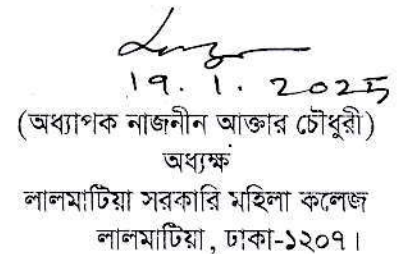 19. 1. 2025
(অধ্যাপক নাজনীন আক্তার চৌধুরী)
অধ্যক্ষ
লালমাটিয়া সরকারি মহিলা কলেজ
লালমাটিয়া, ঢাকা-১২০৭।